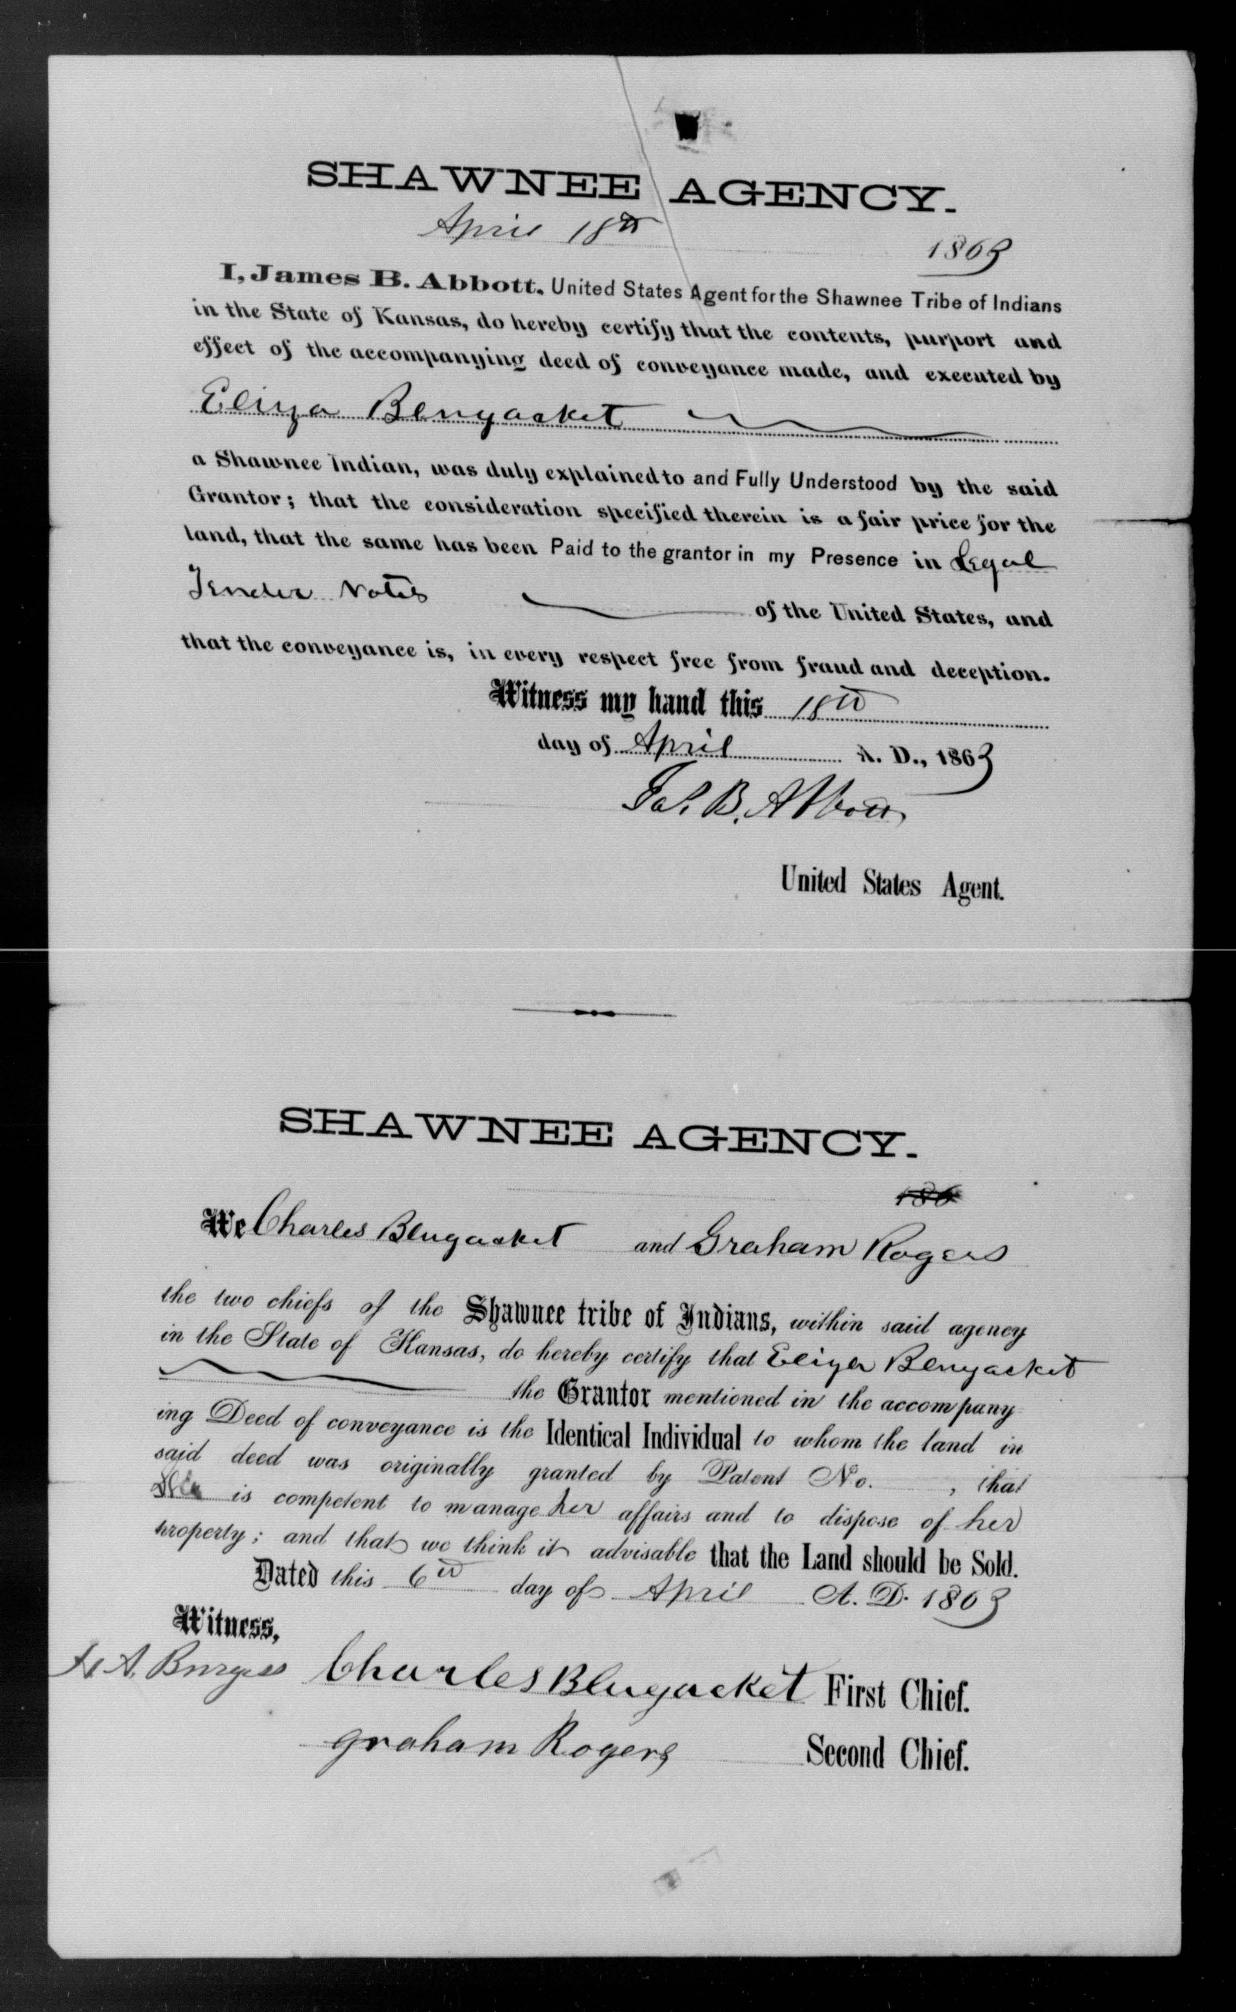 SHAWNEE AGENCY.
April 18th 1863
I, James B. Abbott. United States Agent for the Shawnee Tribe of Indians
in the State of Kansas, do hereby certify that the contents, purport and
effect of the accompanying deed of conveyance made, and executed by
Eliza Blugacket
a Shawnee Indian, was duly explained to and Fully Understood by the said
Grantor; that the consideration specified therein is a fair price for the
land, that the same has been Paid to the grantor in my Presence in Legal
Tender Notes of the United States, and
that the conveyance is, in every respect free from fraud and deception.
Witness my hand this 18th
day of April A. D., 1863
Jas. B. Abbott
United States Agent.
SHAWNEE AGENCY.
186
We Charles Blugacket and Graham Rogers
the two chiefs of the Shawnee tribe of Indians, within said agency
in the State of Kansas, do hereby certify that Eliza Blugacket
the Grantor mentioned in the accompany-
ing Deed of conveyance is the Identical Individual to whom the land in
said deed was originally granted by Patent No. , that
She is competent to manage her affairs and to dispose of her
property; and that we think it advisable that the Land should be Sold.
Dated this 6th day of April A. D. 1863
Witness,
A. Burgess Charles Blugacket First Chief.
Graham Rogers Second Chief.